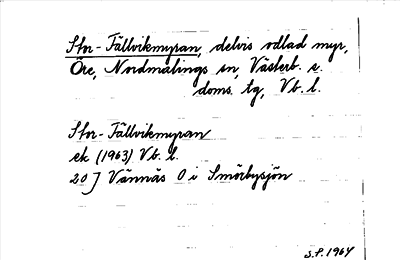 Stor-Fällvikmyran, delvis odlad myr,
Öre, Nordmalings sn, Västerb. s.
doms. tg, Vb. l.
Stor-Fällvikmyran
ek (1963) Vb. l.
20 J Vännäs O i Smörbysjön
S.P. 1964